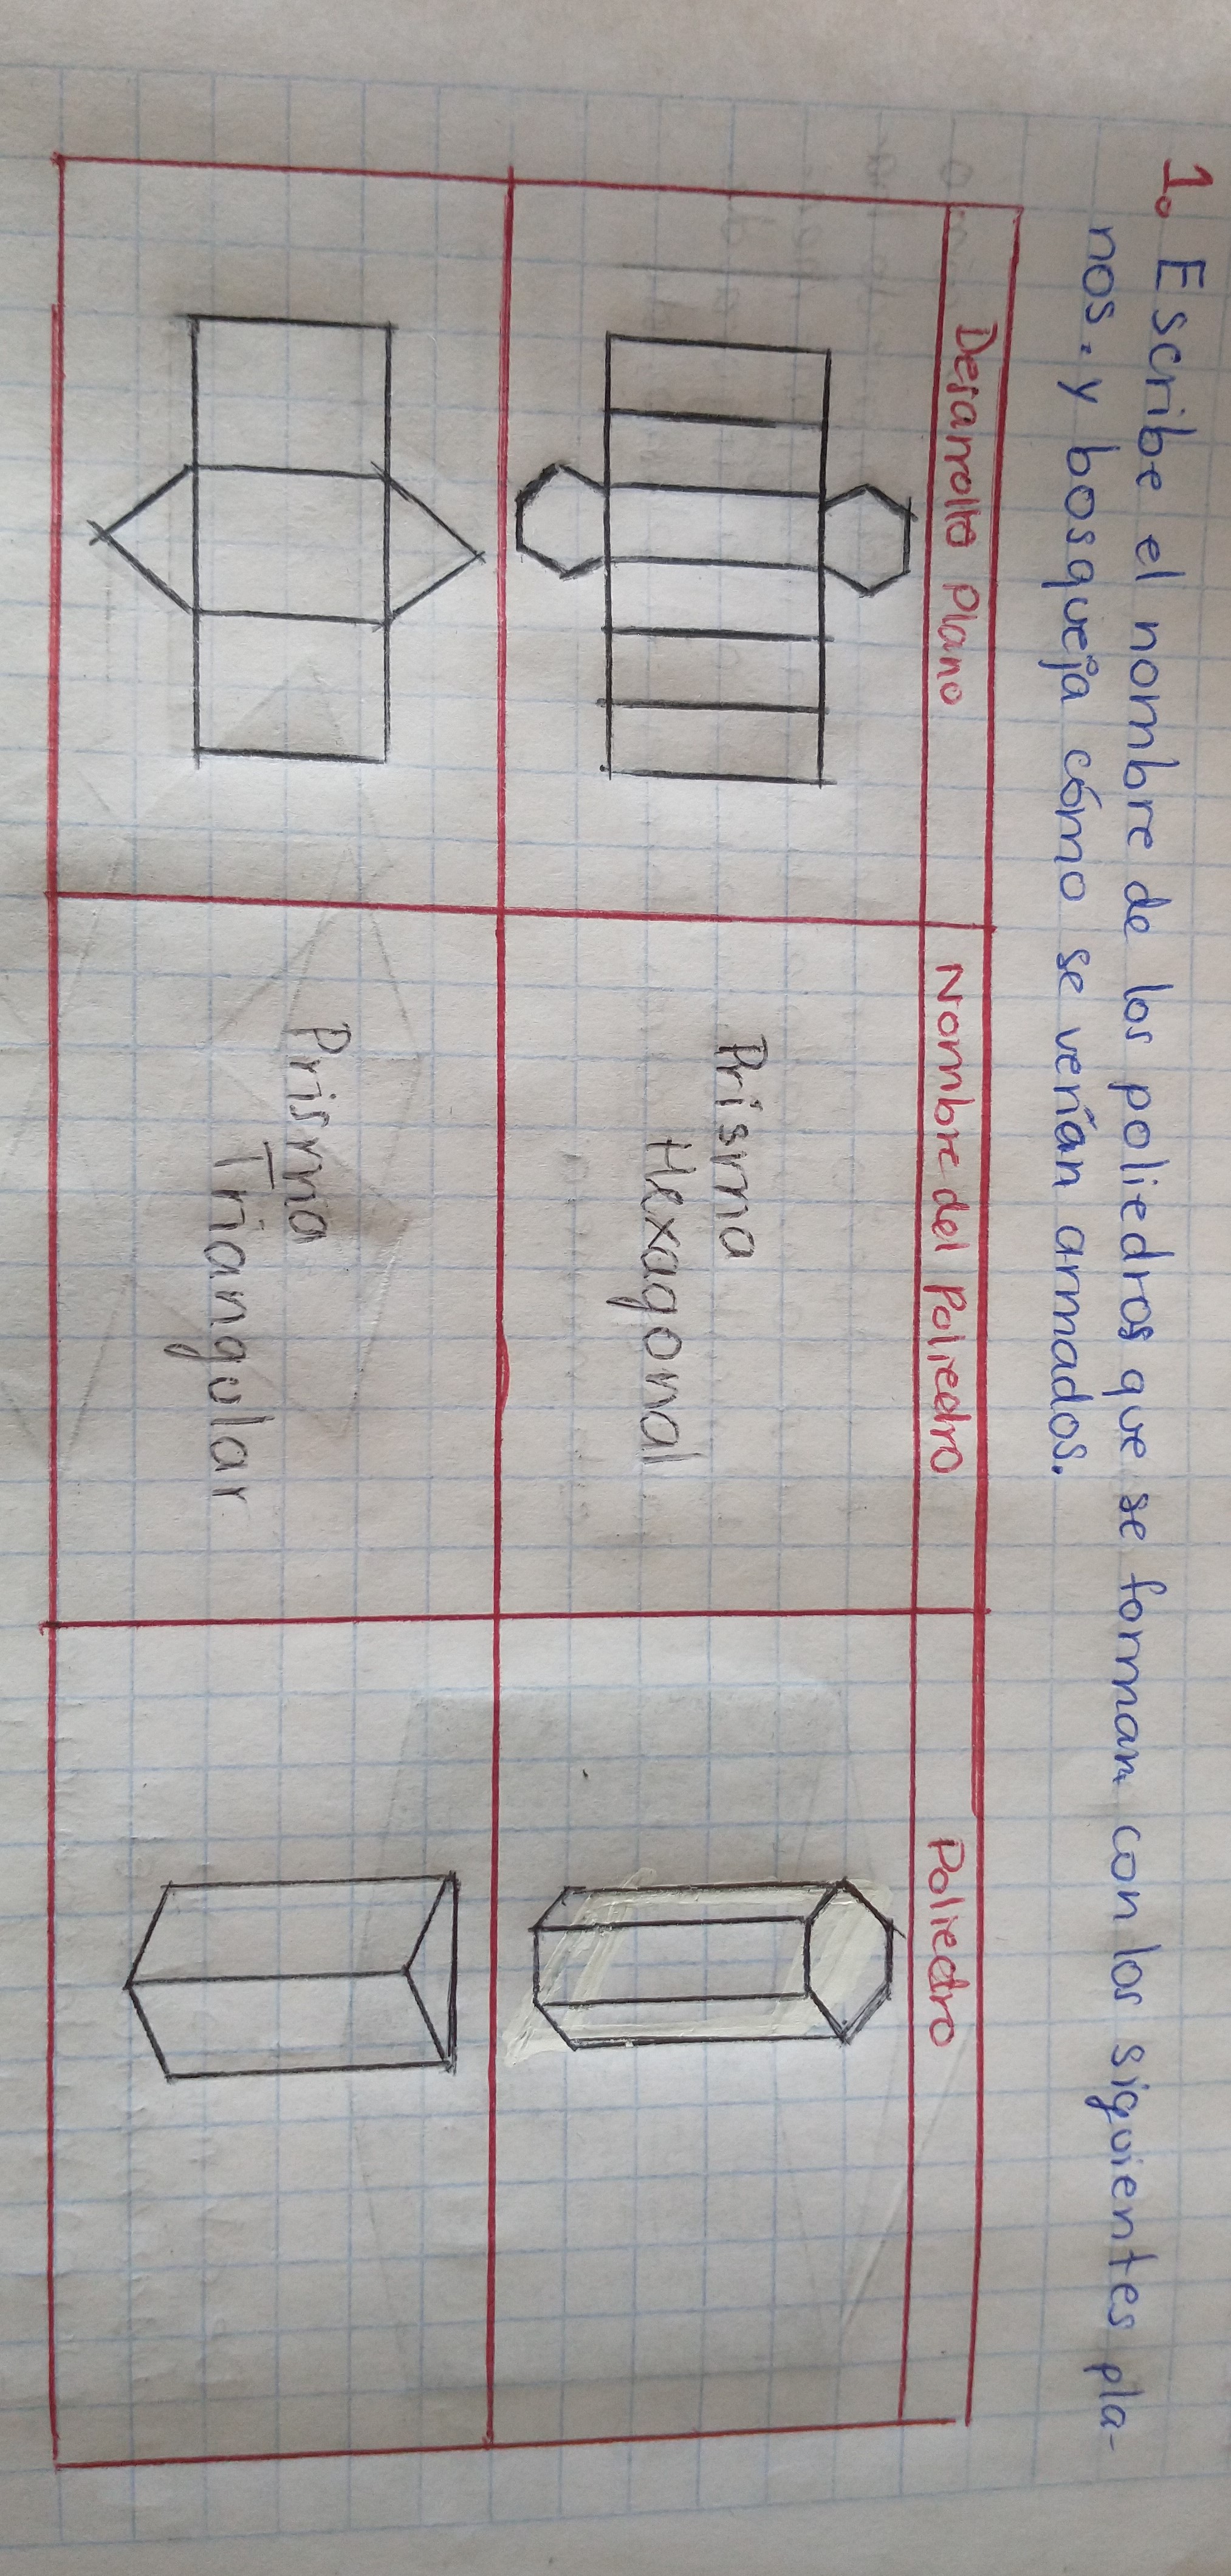 1. Escribe el nombre de los poliedros que se forman con los siguientes pla-
nos. y bosqueja cómo se verían armados.
Desarrollo Plano
Nombre del Poliedro
Poliedro
Prisma
Hexagonal
Prisma
Triangular